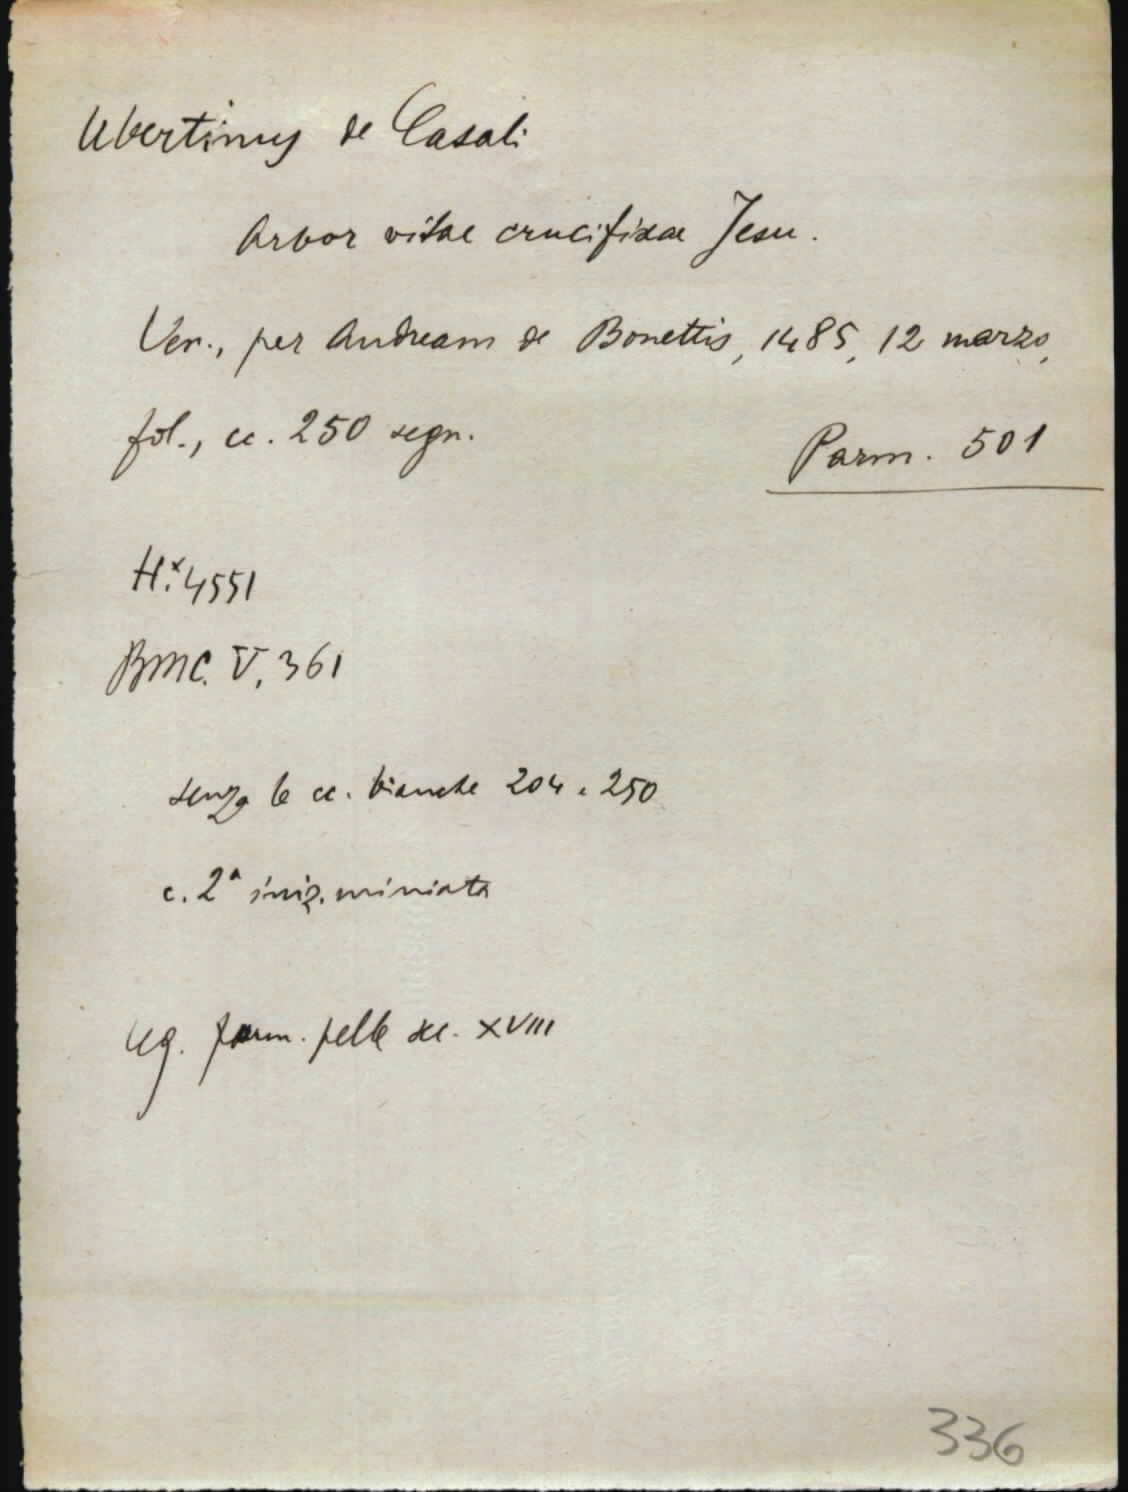 Ubertinus de Casali
Arbor vitae crucifixae Jesu.
Ven., per Andream de Bonettis, 1485, 12 marzo,
fol., cc. 250 segn.
Parm. 501
H.x 4551
BMC. V, 361
senza le cc. bianche 204 e 250
c. 2a iniz. miniata
Leg. parm. pelle sec. XVIII
336